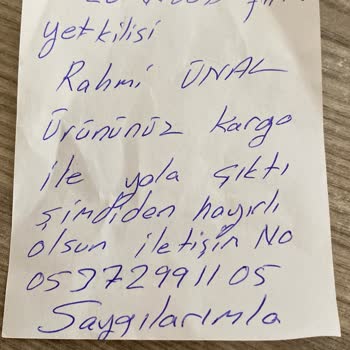 yetkilisi
Rahmi ÜNAL
Ürününüz kargo
ile yola çıktı
şimdiden hayırlı
olsun iletişin No
05372991105
Saygılarımla